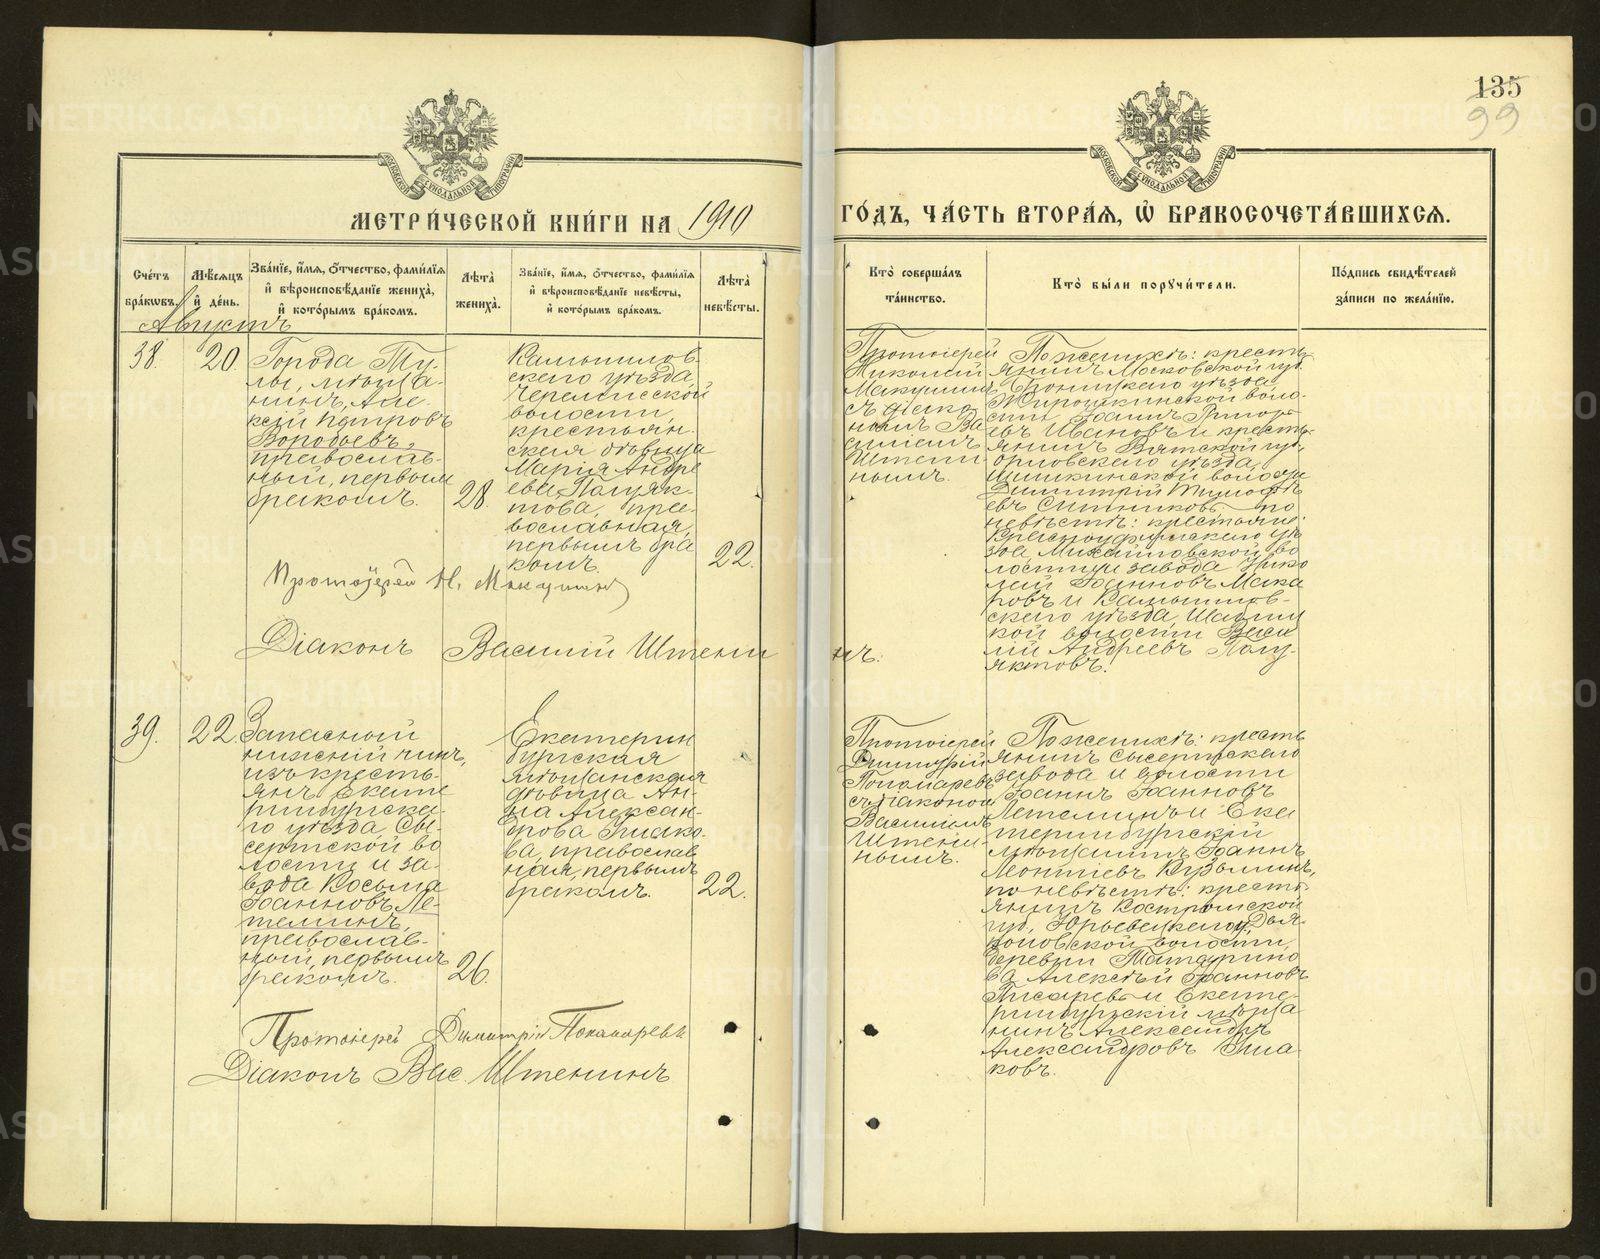 135
99
МОСКОВСКОЙ СѴНОДАЛЬНОЙ ТИПОГРАФІИ
МОСКОВСКОЙ СѴНОДАЛЬНОЙ ТИПОГРАФІИ
МЕТРИ́ЧЕСКОЙ КНИ́ГИ НА 1910
ГО́ДЪ, ЧА́СТЬ ВТОРА́Я, Ѡ҆ БРАКОСОЧЕТА́ВШИХСЯ.
Сче́тъ
бра́кѡвъ.
Мѣ́сяцъ
и҆ де́нь.
Зва́нїе, и҆́мя, ѻ҆́тчество, фамилїя
и҆ вѣроисповѣ́данїе жениха̀,
и҆ кото́рымъ бра́комъ.
Лѣ́та
жениха̀.
Зва́нїе, и҆́мя, ѻ҆́тчество, фами́лїя
и҆ вѣроисповѣ́данїе невѣ́сты,
и҆ кото́рымъ бра́комъ.
Лѣ́та
невѣ́сты.
Кто̀ соверша́лъ
та́инство.
Кто̀ бы́ли поручи́тели.
По́дпись свидѣ́телей
за́писи по жела́нїю.
Августъ
38.
20.
Города Ту-
лы, мѣща-
нинъ, Але-
ксій Петровъ
Воробьевъ,
православ-
ный, первым
бракомъ.
28.
Камышлов-
скаго уѣзда
Черемисской
волости,
крестьян-
ская дѣвица
Марія Андре
ева Полуяк-
това, пра-
вославная,
первымъ бра
комъ.
22.
Протоіерей
Николай
Макушинъ
съ діако-
номъ Ва
силіемъ
Штени-
нымъ.
По женихѣ: кресть-
янинъ Московской губ.
Бронницкаго уѣзда,
Жирошкинской воло-
сти Іоаннъ Григорь
евъ Ивановъ и кресть-
янинъ Вятской губ.,
Орловскаго уѣзда,
Шишкинской волости
Димитрій Тимофѣ
евъ Ситниковъ; по
невѣстѣ: крестьяне:
Красноуфимскаго уѣ
зда Михайловской во
лости и завода Нико
лай Іоанновъ Мака
ровъ и Камышлов-
скаго уѣзда,
кой волости Васи
лій Андреевъ Полу-
яктовъ.
Протоіерей Н. Макушинъ
Діаконъ Василій Штенинъ.
39.
22.
Запасной
нижній чинъ,
изъ кресть-
янъ Екате
ринбургска-
го уѣзда, Сы-
сертской во
лости и за-
вода Косьма
Іоанновъ Ле-
теминъ,
православ-
ный, первымъ
бракомъ.
26.
Екатерин
бургская
мѣщанская
дѣвица Ан-
на Алексан-
дрова Ушако-
ва, православ
ная, первымъ
бракомъ.
22.
Протоіерей
Димитрій
Пономаревъ
съ діакономъ
Василіемъ
Штени-
нымъ.
По женихѣ: кресть
янинъ Сысертскаго
завода и волости
Іоаннъ Іоанновъ
Летеминъ и Ека
теринбургскій
мѣщанинъ Іоаннъ
Леонтіевъ Кузьминъ,
по невѣстѣ: кресть-
янинъ Костромской
губ. Юрьевецкаго у. Дья-
коновской волости,
деревни Матурино
ва Алексѣй Іоанновъ
Писаревъ и Екате-
ринбургскій мѣща
нинъ Александръ
Александровъ Уша-
ковъ.
Протоіерей Димитрій Пономаревъ
Діаконъ Вас. Штенинъ